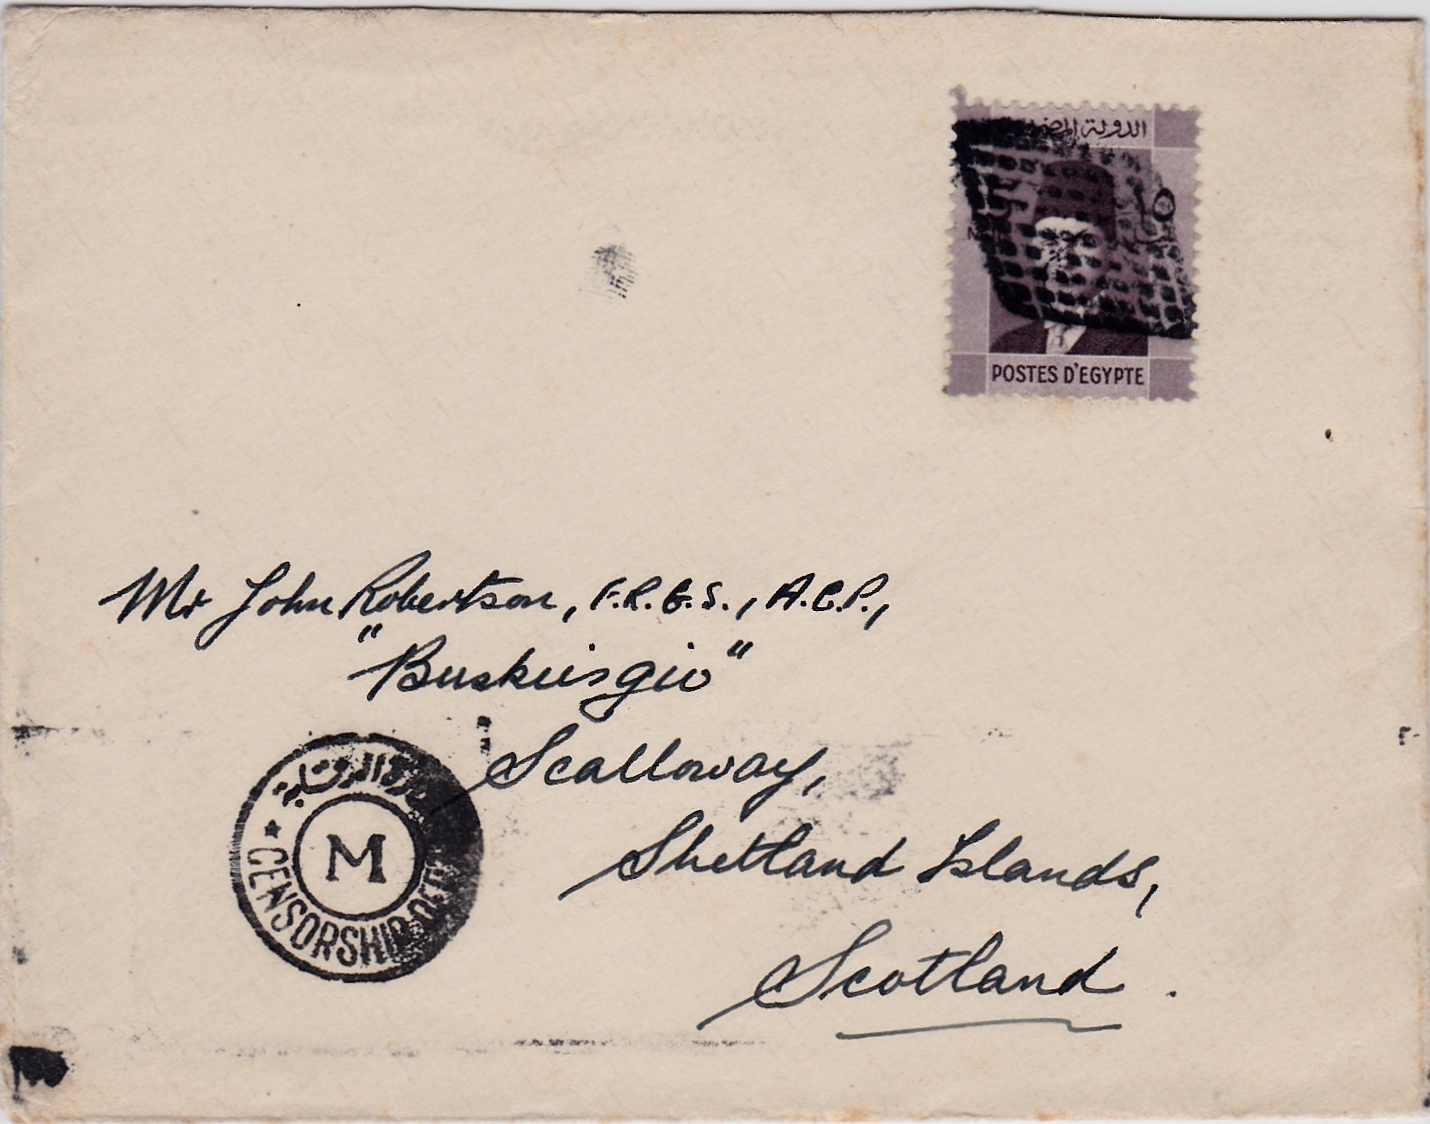 الدولة المصرية
١٥
POSTES D'EGYPTE
Mr John Robertson, F.R.G.S., A.C.P.,
Scalloway,
Shetland Islands,
Scotland.
الرقابة
M
★ CENSORSHIP